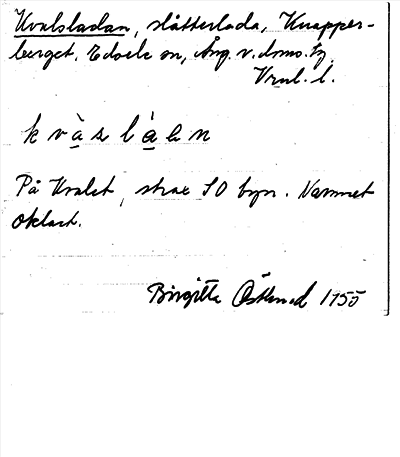 Kvalsladan, slåtterlada, Knapper-
berget, Edsele sn, Ång. v.doms.
Vrnl. l.
k v à s l à a n
På Kvalet, strax SO byn. Namnet
oklart.
Birgitta Östlund 1955